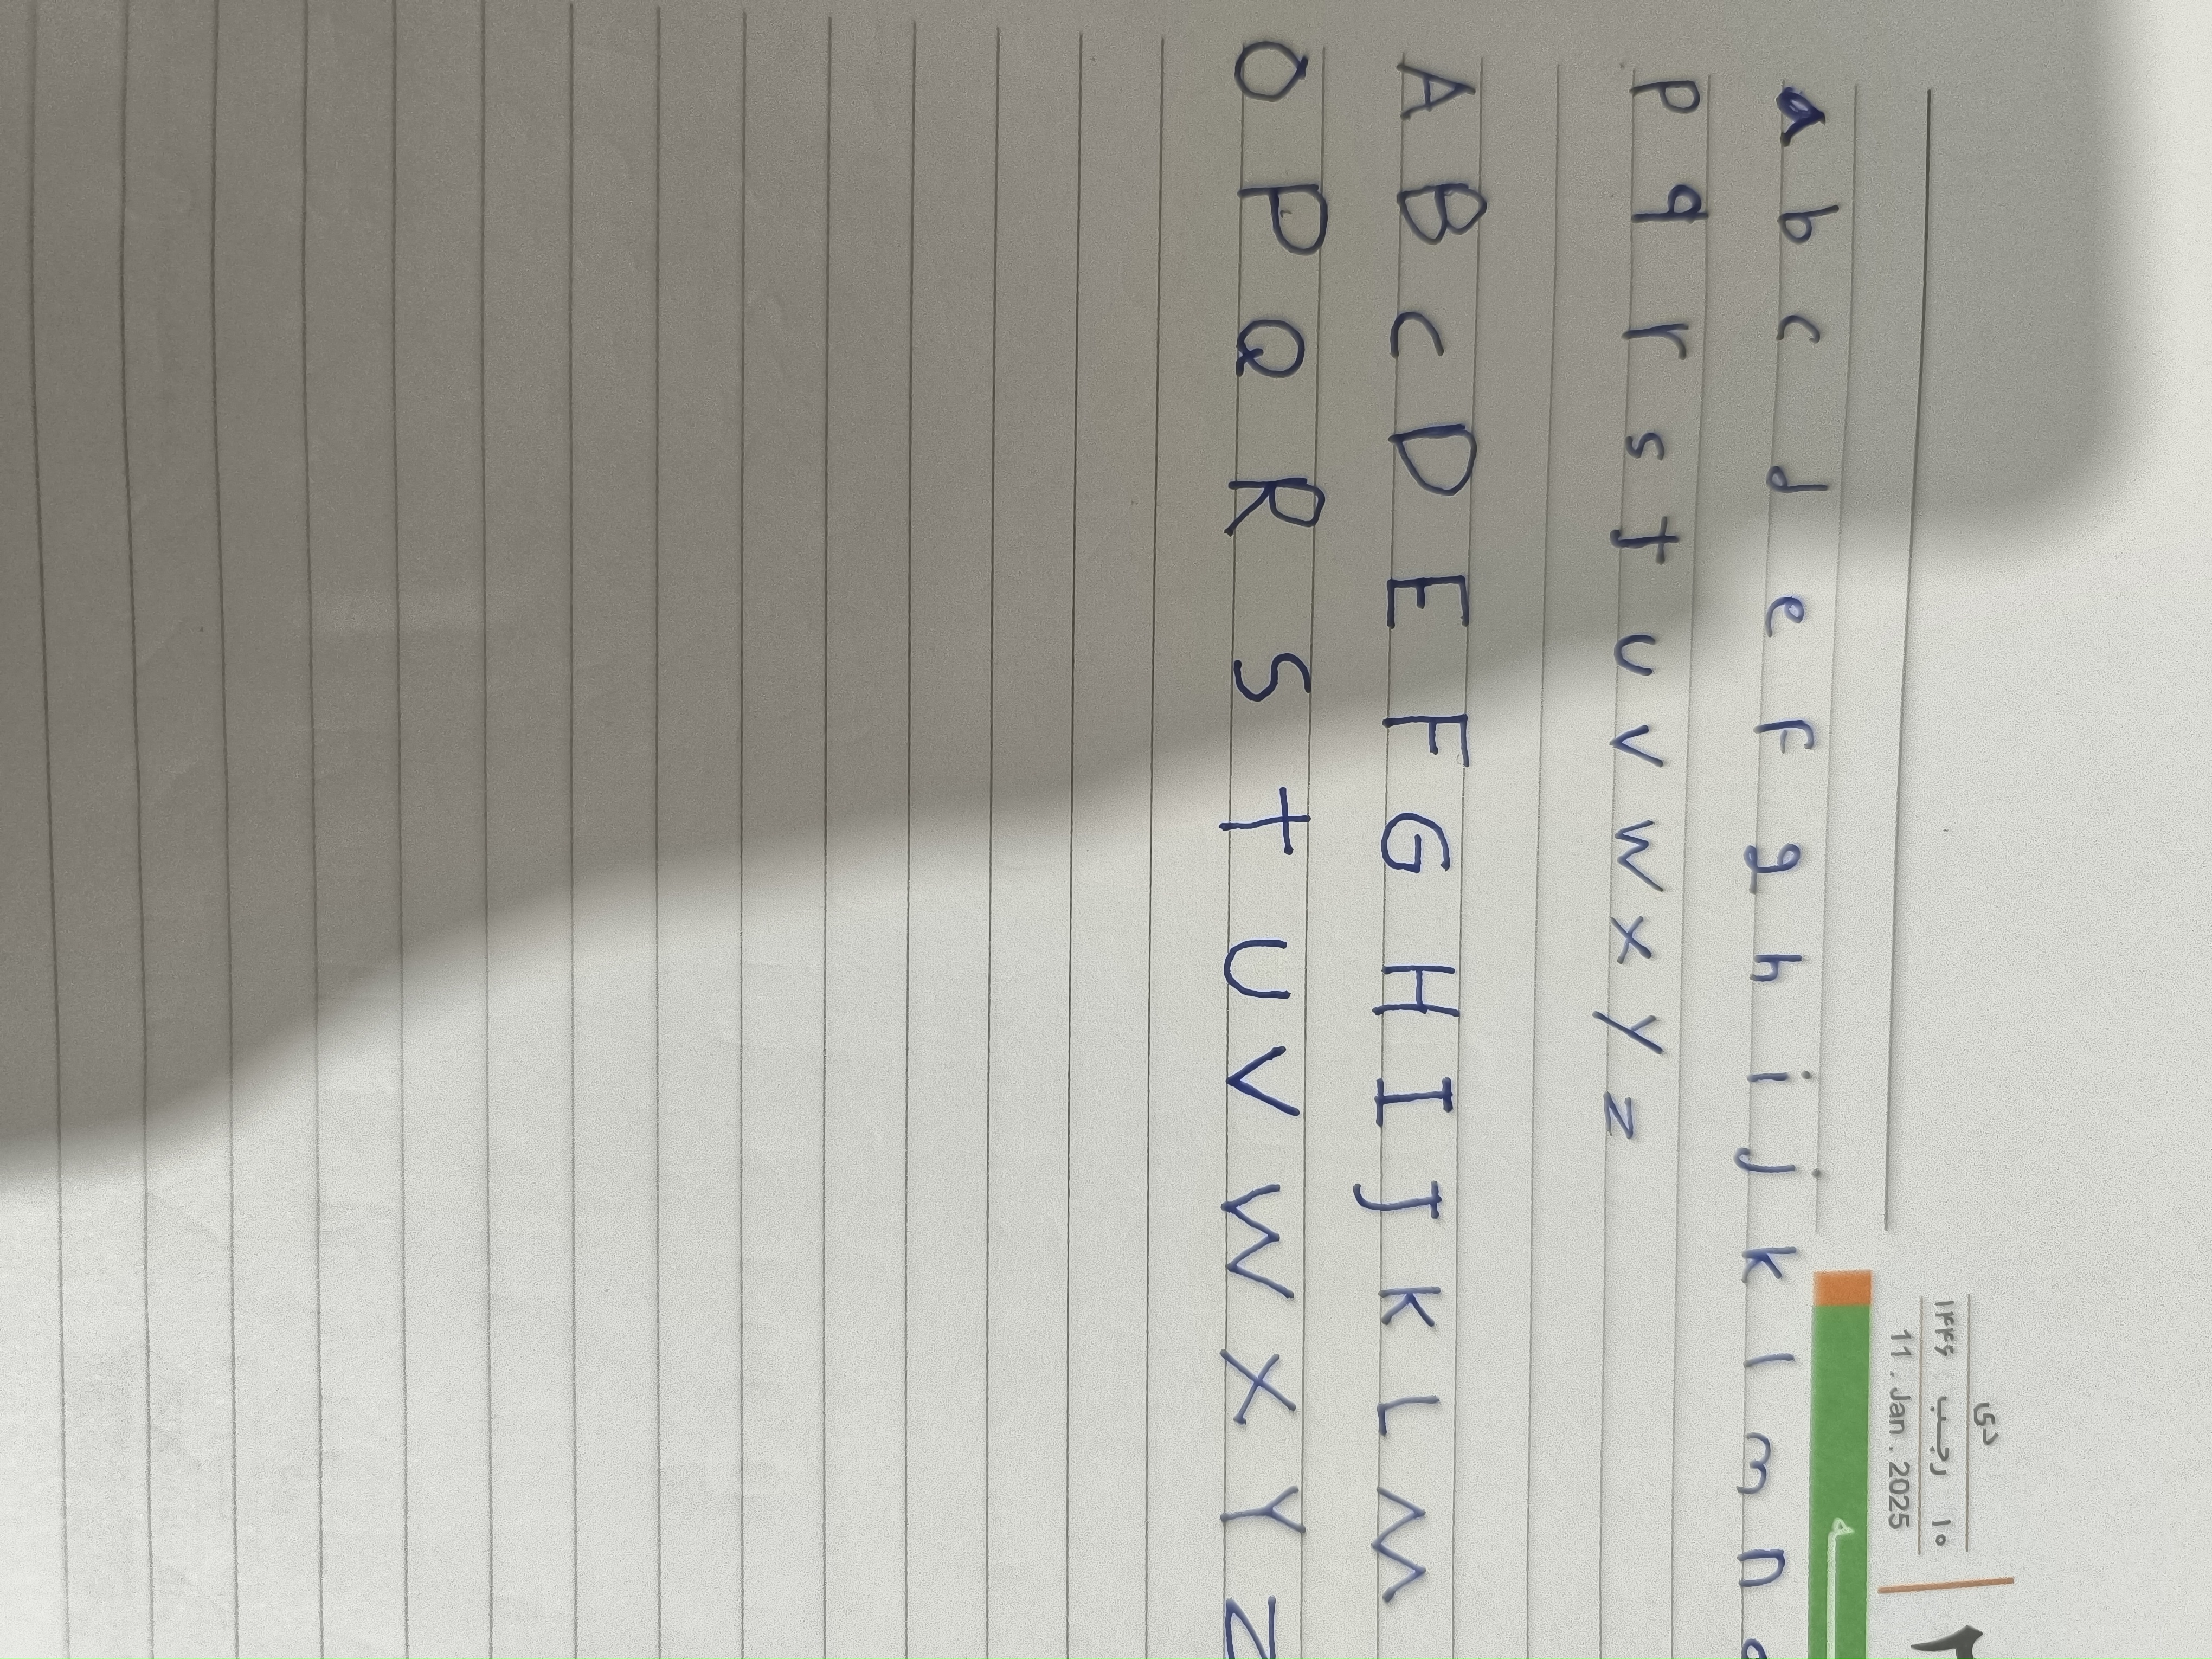 دی
۱۰ رجب ۱۴۴۶
11 . Jan . 2025
a b c d e f g h i j k l m n o
p q r s t u v w x y z
A B C D E F G H I J K L M
O P Q R S T U V W X Y Z